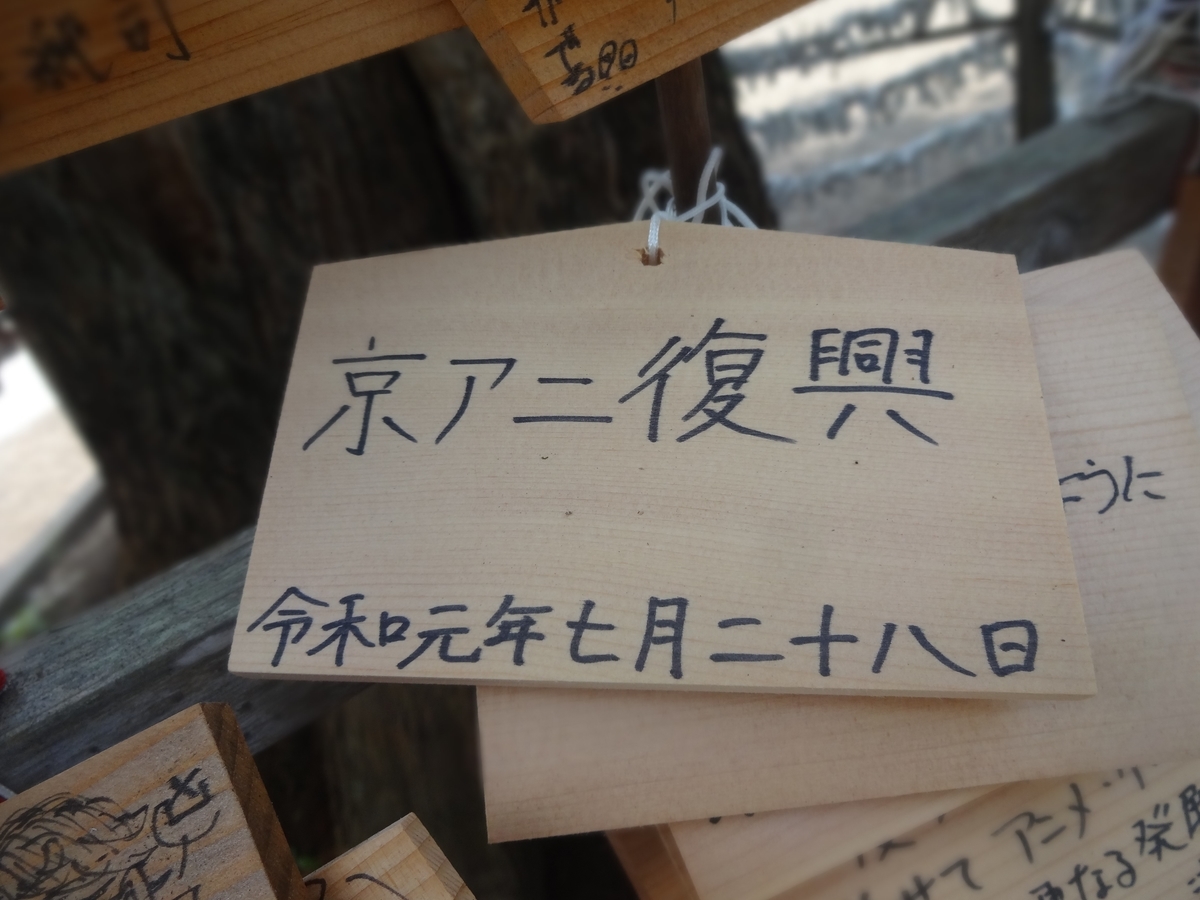 京アニ復興
令和元年七月二十八日
うに
アニメ